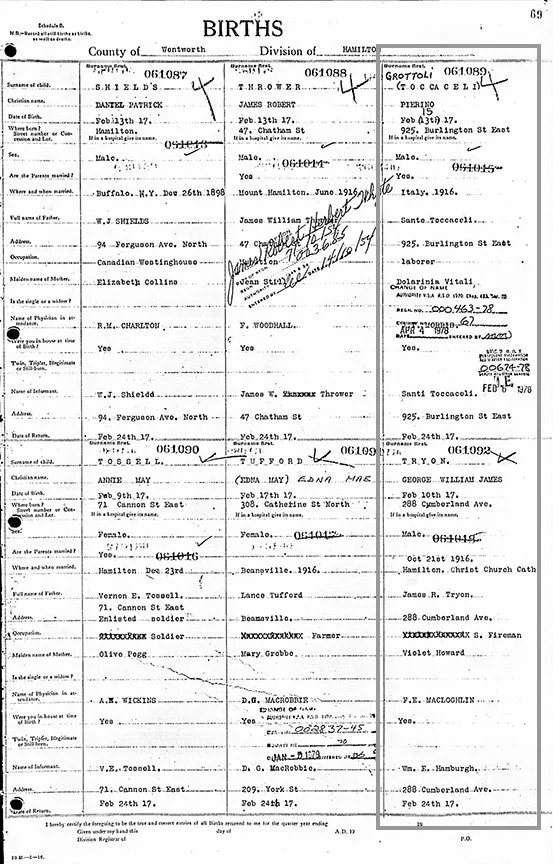 Schedule B.
N.B.—Record all still births as births, as well as deaths.
69
BIRTHS
County of Wentworth Division of HAMILTON
Surname first. 061087 4 Surname first. 061088 4 Surname first. 061089 4
GROTTOLI
Surname of child SHIELDS THROWER (TOCCACELI)
Christian name DANIEL PATRICK JAMES ROBERT PIERINO
15
Date of Birth Feb 13th 17. Feb 13th 17. Feb (13th) 17.
Where born? Hamilton. 47. Chatham St 925. Burlington St East
Street number or Concession and Lot. If in a hospital give its name. If in a hospital give its name. If in a hospital give its name.
061013 061014 061015
Sex. Male. Male. Male.
Are the Parents married? Yes Yes
Where and when married. Buffalo. N.Y. Dec 26th 1898 Mount Hamilton. June 1916 Italy. 1916.
Full name of Father. W.J SHIELDS James William Sante Toccacoli.
Address. 94 Ferguson Ave. North 47 925. Burlington St East
Occupation. Canadian Westinghouse laborer
Maiden name of Mother. Elizabeth Collins Jean Dolarinia Vitali
James Robert Herbert White
14/10/54
CHANGE OF NAME
Is she single or a widow?
REGN. NO. 000463-78
Name of Physician in attendance. R.M. CHARLTON F. WOODHALL.
APR 4 1978
Were you in house at time of Birth? Yes Yes Yes.
Twin, Triplet, Illegitimate or Still-born.
00674-78
FEB 1978
Name of Informant W.J. Shields James W. Thrower Santi Toccacoli.
Address. 94. Ferguson Ave. North 47 Chatham St 925. Burlington St East
Date of Return. Feb 24th 17. Feb 24th 17. Feb 24th 17.
Surname first. 061090 Surname first. 06109 061092
Surname of child. TOSSELL. TUFFORD TRYON.
Christian name. ANNIE MAY (EDNA MAY) EDNA MAE GEORGE WILLIAM JAMES
Date of Birth. Feb 9th 17. Feb 17th 17. Feb 10th 17.
Where born? 71 Cannon St East 308. Catherine St North 288 Cumberland Ave.
If in a hospital give its name. If in a hospital give its name. If in a hospital give its name.
Sex. Female. Female. Male.
Are the Parents married? Yes. 061016
Oct 21st 1916.
Where and when married. Hamilton Dec 23rd Beamsville. 1916. Hamilton. Christ Church Cath
Full name of Father. Vernon E. Tossell. Lance Tufford James R. Tryon.
71. Cannon St East
Address. Enlisted soldier Beamsville. 288 Cumberland Ave.
Occupation. Soldier Farmer S. Fireman
Maiden name of Mother. Olive Pegg Mary Grobbe Violet Howard
Is she single or a widow?
Name of Physician in attendance. A.E. WICKINS D.G. MACROBBIE F.E. MACLOGHLIN
CHANGE OF NAME
Were you in house at time of Birth? Yes Yes Yes.
Twin, Triplet, Illegitimate or Still-born.
002837-45
JAN
Name of Informant V.E. Tossell. D. G. MacRobbie. Wm. E. Hamburgh.
Address. 71. Cannon St East 209. York St 288 Cumberland Ave.
Date of Return. Feb 24th 17. Feb 24th 17. Feb 24th 17.
I hereby certify the foregoing to be the true and correct entries of all Births returned to me for the quarter year ending 19
Given under my hand this day of A.D. 19
Division Registrar of P.O.
10 M.—5—16.